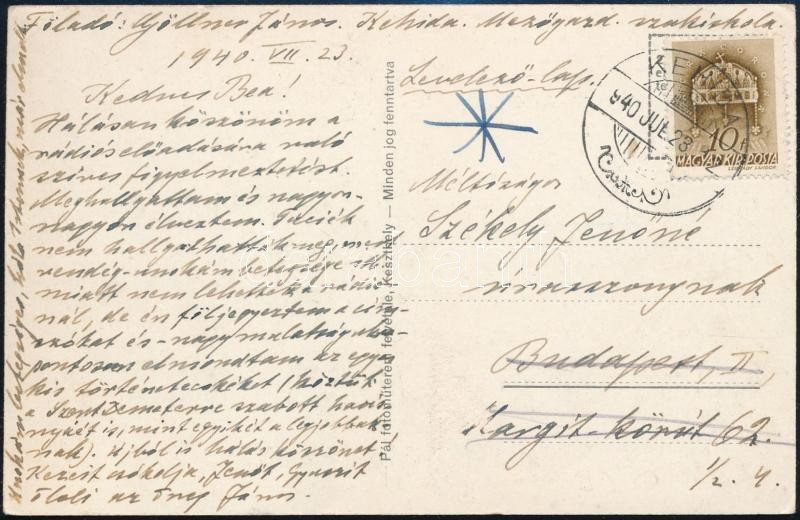 Föladó: Gyöllner János. Kehida. Mezőgazd. szakiskola.
1940. VII. 23.
Kedves Bea!
Hálásan köszönöm a
rádióselőadására való
szíves figyelmeztetést.
Meghallgattam és nagyon-
nagyon élveztem. Teciék
nem hallgathatták meg, mert
vendég-unokám betegsége
miatt nem lehettek a rádió-
nál, de én följegyeztem a cím-
szókat és nagy
pontosan elmondtam az egyes
kis történetecskéket (köztük
a Szent Demeterre szabott haris-
nyáét is, mint egyikét a legjobbak-
nak). Ujból is hálás köszönet!
Kezeit csókolja, Jenőt, Gyurit
öleli az öreg János.
Unokám
Pál fotóműterem felvétele, Keszthely — Minden jog fenntartva
Levelező-lap.
KEHIDA
940 JUL 23
10f
MAGYAR KIR. POSTA
Méltóságos
Székely Jenőné
úrasszonynak
Budapest, II
Margit-körút 62.
1/2. 4.